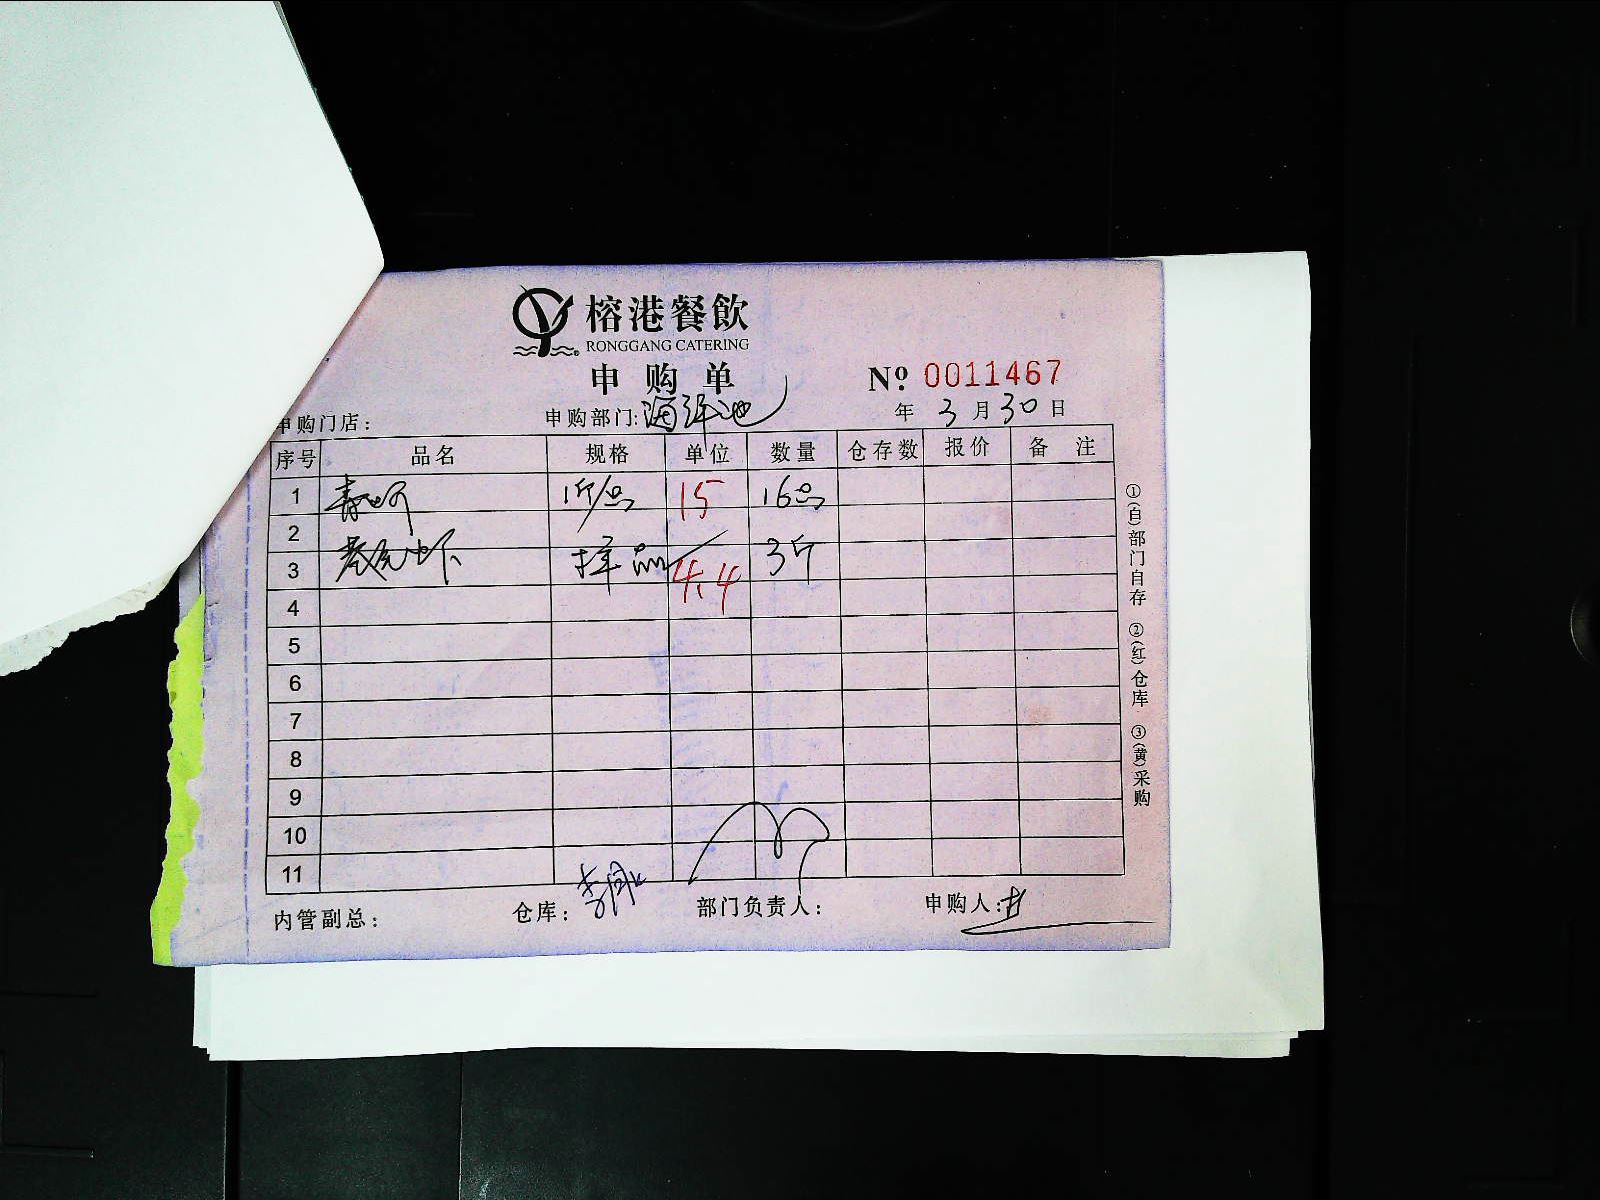 榕港餐飲
RONGGANG CATERING
申购单
№ 0011467
申购门店： 申购部门:海鲜池 年 3 月 30 日
序号 品名 规格 单位 数量 仓存数 报价 备 注
1 1斤/只 15 16只
2
3 样品 4.4 3斤
4
5
6
7
8
9
10
11
内管副总： 仓库： 部门负责人： 申购人：
①(白)部门自存 ②(红)仓库 ③(黄)采购